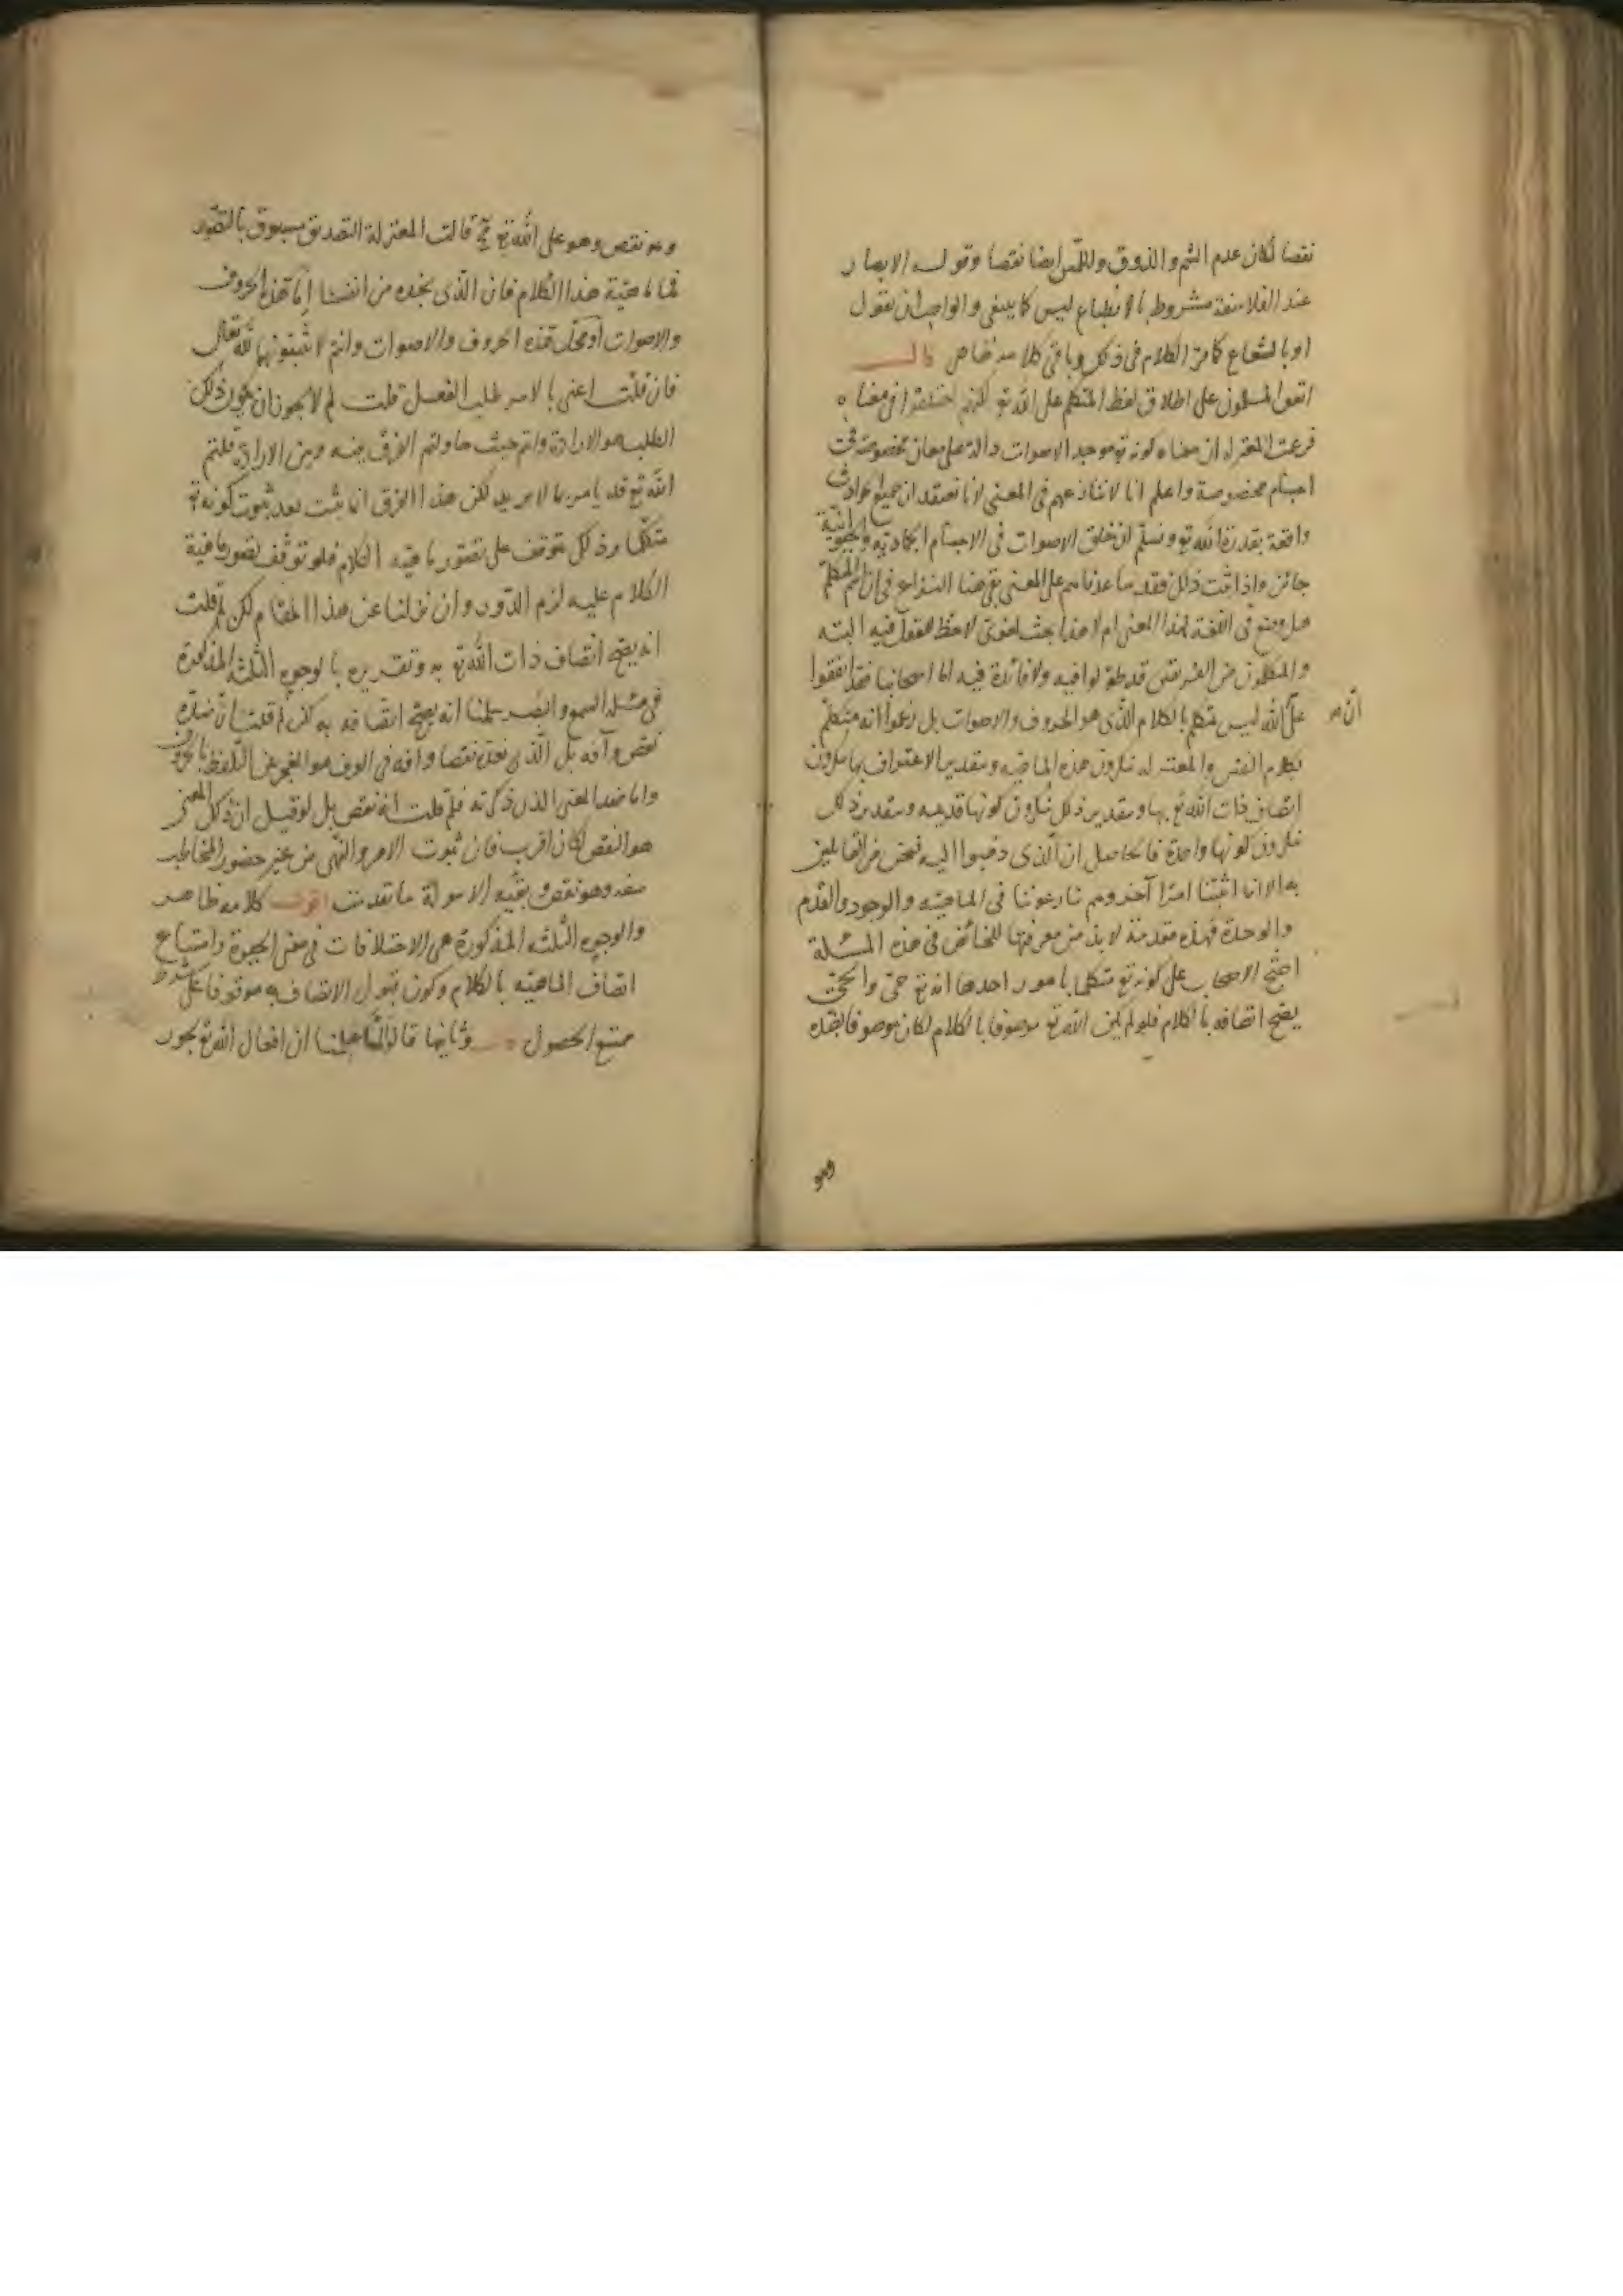 نقصا لكان عدم الشم والذوق واللمس ايضا نقصا وقوله الابصار
عند الفلاسفة مشروط بالانطباع ليس كما ينبغي والواجب ان يقول
او بالشعاع كما مر الكلام فى ذلك وباقى كلامه خاص قال
اتفق المسلمون على اطلاق لفظ المتكلم على الله تع لكنهم اختلفوا فى معناه
فزعمت المعتزلة ان معناه كونه تع موجد الاصوات دالة على معان مخصوصة فى
اجسام مخصوصة واعلم انا لا ننازعهم فى المعنى لانا نعتقد ان جميع الحوادث
واقعة بقدرة الله تع ونسلم ان خلق الاصوات فى الاجسام الجمادية والحيوانية
جائز واذا ثبت ذلك فقد ساعدناهم على المعنى بقى هنا النزاع فى ان اسم المتكلم
هل وضع فى اللغة لهذا المعنى ام لا وهذا بحث لغوى لا حظ للعقول فيه البته
والمتكلمون من الفريقين قد طولوا فيه ولا فائدة فيه اما اصحابنا فقد اتفقوا
على ان الله ليس متكلم بالكلام الذى هو الحروف والاصوات بل زعموا انه متكلم
بكلام النفس والمعتزله ينكرون هذه الماهيه وبتقدير الاعتراف بها ينكرون
اتصاف ذات الله تع بها وبتقدير ذلك ينكرون كونها قديمه وبتقدير ذلك
ينكرون كونها واحدة فالحاصل ان الذى ذهبوا اليه فنحن من القائلين
به الا انا اثبتنا امرا آخر وهم نازعوننا فى الماهيه والوجود والقدم
والوحدة فهذه مقدمة لا بد من معرفتها للخائض فى هذه المسئلة
احتج الاصحاب على كونه تع متكلما بامور احدها انه تع حى والحى
يصح اتصافه بالكلام فلو لم يكن الله تع موصوفا بالكلام لكان موصوفا بضده
وهو
وهو نقص وهو على الله تع مح قالت المعتزلة التصديق مسبوق بالتصور
فما ماهية هذا الكلام فان الذى نجده من انفسنا اما هذه الحروف
والاصوات او تخيل هذه الحروف والاصوات وانتم لا تثبتونها لله تعالى
فان قلت اعنى بالامر طلب الفعل قلت لم لا يجوز ان يكون ذلك
الطلب هو الارادة وانتم حيث حاولتم الفرق بينه وبين الارادة قلتم
الله تع قد يامر بما لا يريد لكن هذا الفرق انما يثبت بعد ثبوت كونه تع
متكلما وذلك يتوقف على تصور ماهية الكلام فلو توقف تصور ماهية
الكلام عليه لزم الدور وان نزلنا عن هذا المقام لكن لم قلت
انه يصح اتصاف ذات الله تع به وتقريره بالوجوه الثلثة المذكورة
فى مسئلة السمع والبصر سلمنا انه يصح اتصافه به لكن لم قلت ان ضده
نقص وآفة بل الذى نعده نقصا وافة فى العرف هو العجز عن التلفظ بالحروف
واما ضد المعنى الذى ذكرته فلم قلت انه نقص بل لو قيل ان ذلك المعنى
هو النقص لكان اقرب فان ثبوت الامر والنهى من غير حضور المخاطب
سفه وهو نقص وبقيه الاسولة ما تقدمت اقول كلامه ظاهر
والوجوه الثلثه المذكورة هى الاختلافات فى معنى الحيوة وامتناع
اتصاف الماهيه بالكلام وكون قبول الاتصاف به موقوفا على شرط
ممتنع الحصول وثانيها قالوا لما علمنا ان افعال الله تع يجوز